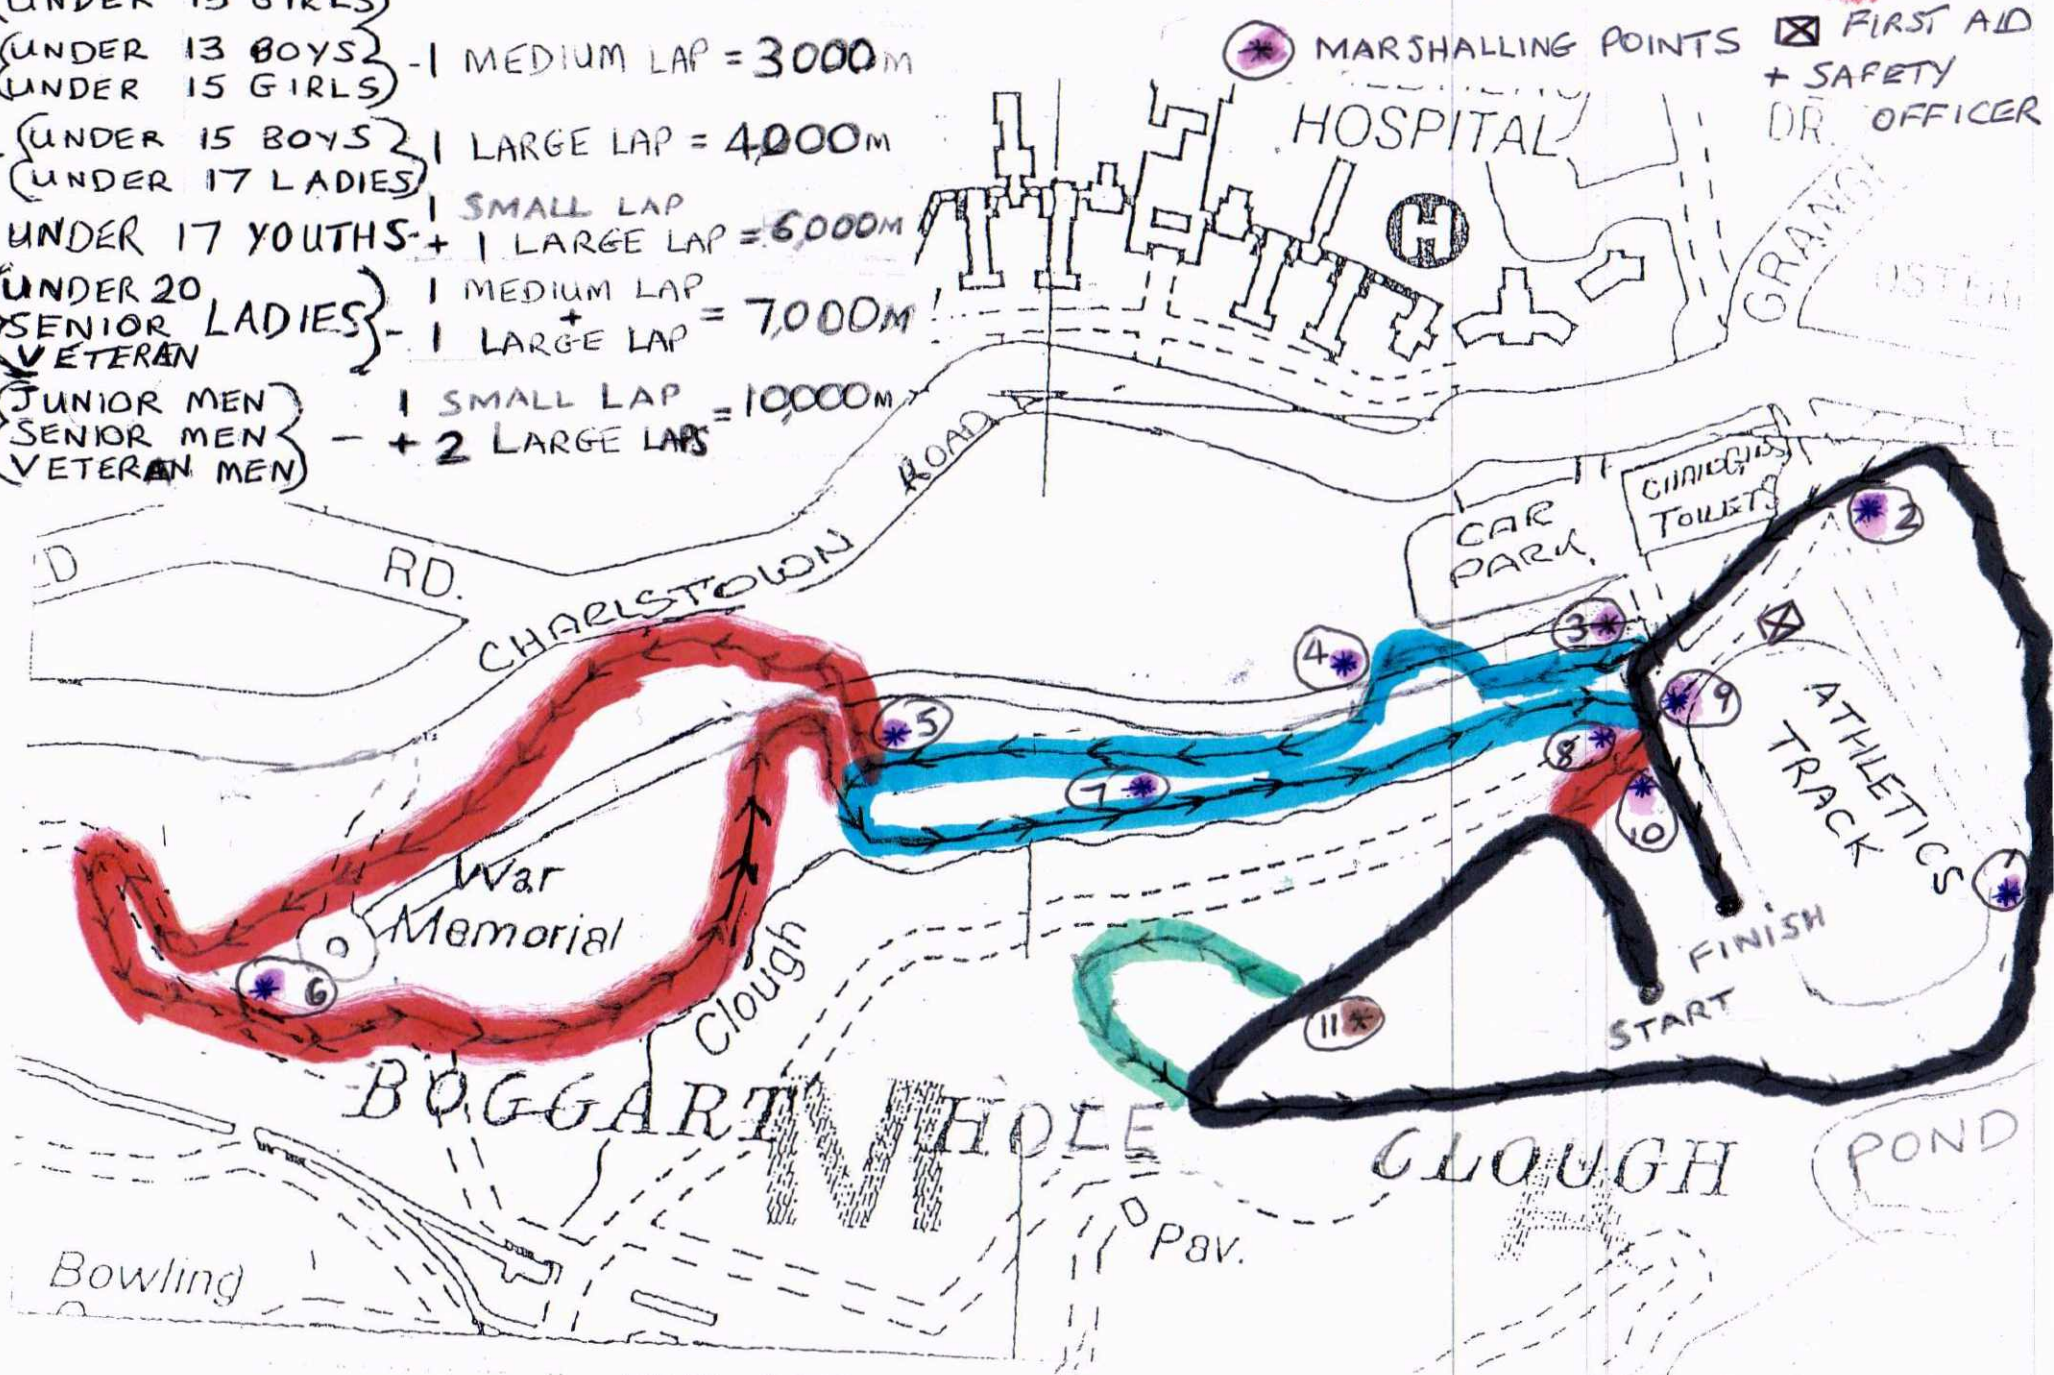 (UNDER 15 GIRLS)
(UNDER 13 BOYS
(UNDER 15 GIRLS) -1 MEDIUM LAP = 3000m
(UNDER 15 BOYS
(UNDER 17 LADIES) 1 LARGE LAP = 4,000M
UNDER 17 YOUTHS - 1 SMALL LAP
+ 1 LARGE LAP = 6,000M
UNDER 20
SENIOR LADIES
VETERAN
- 1 MEDIUM LAP
+
1 LARGE LAP = 7,000M
JUNIOR MEN
SENIOR MEN
VETERAN MEN)
- 1 SMALL LAP
+ 2 LARGE LAPS = 10,000M
* MARSHALLING POINTS
FIRST AID
+ SAFETY
OFFICER
HOSPITAL
DR.
H
ROAD
CHARLSTOWN
RD.
CAR
PARK
CHANGING
TOILETS
2
3
4
5
6
7
8
9
10
11
ATHLETICS
TRACK
FINISH
START
War
Memorial
Clough
BOGGART HOLE CLOUGH
M
A
POND
Pav.
Bowling